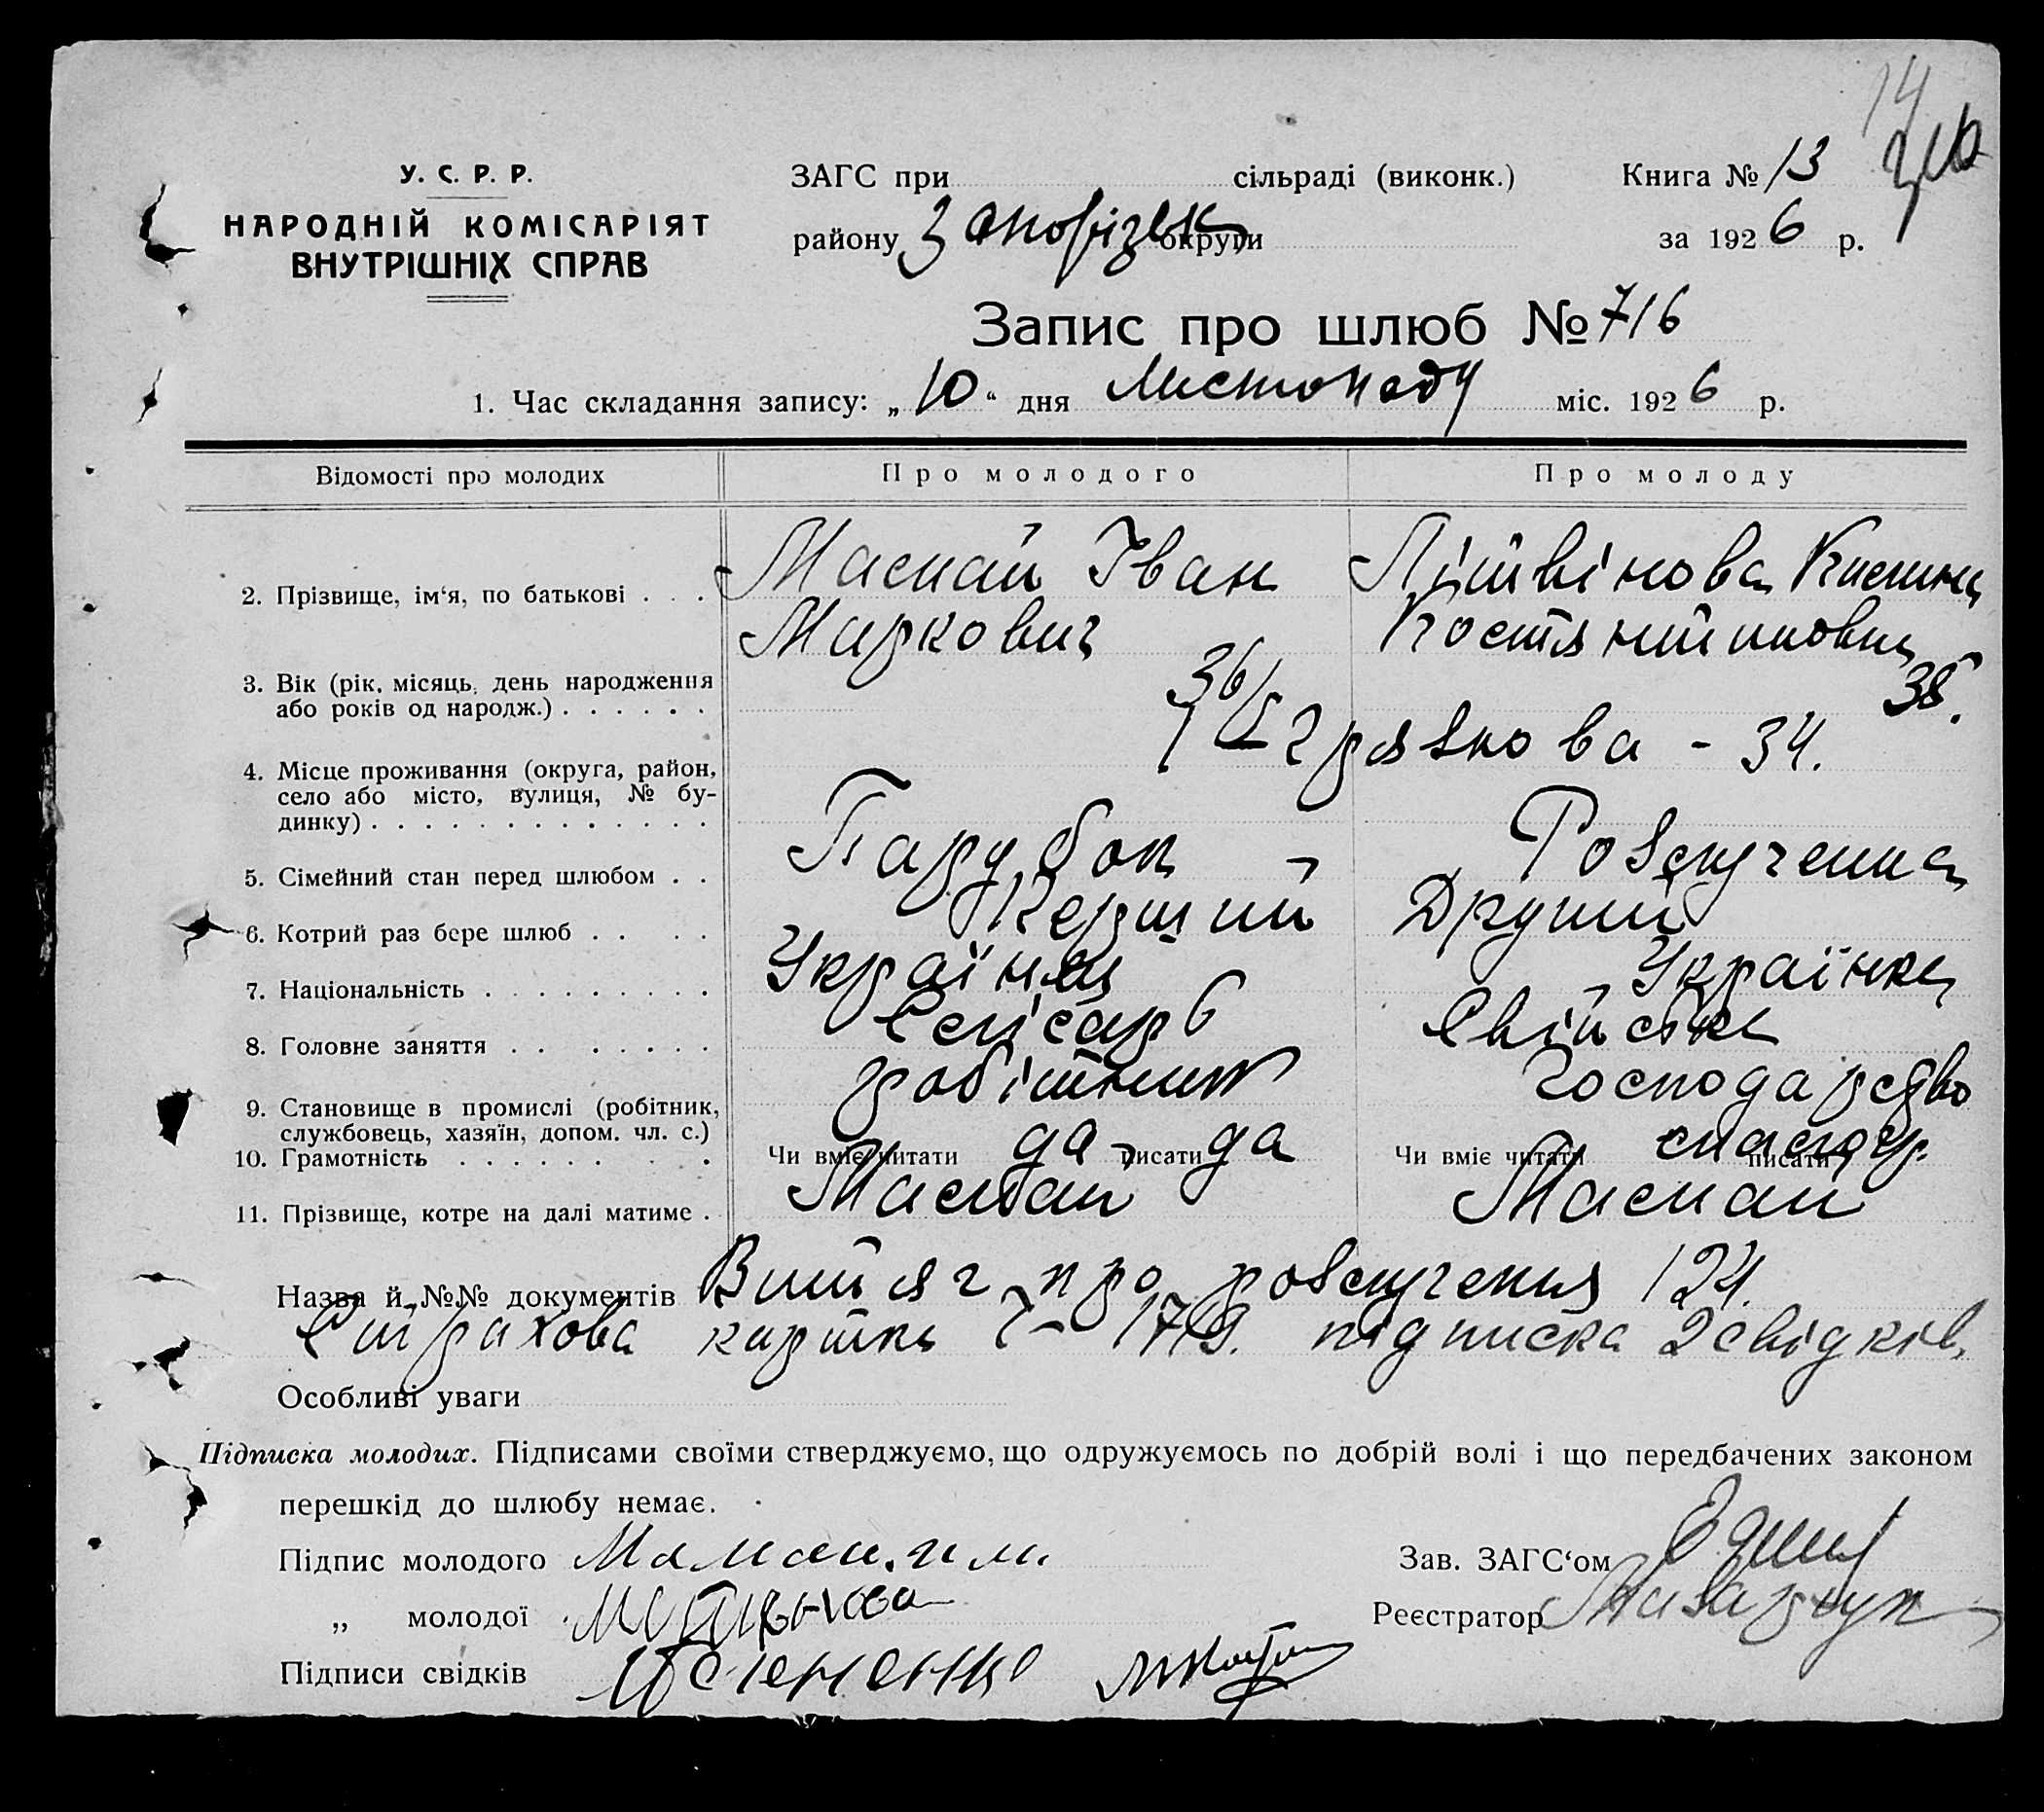 14
У. С. Р. Р.
НАРОДНІЙ КОМІСАРІЯТ
ВНУТРІШНІХ СПРАВ
ЗАГС при сільраді (виконк.)
району Запорізьк округи
Книга № 13
за 1926 р.
Запис про шлюб № 716
1. Час складання запису: „10“ дня Листопаду міс. 1926 р.
Відомості про молодих Про молодого Про молоду
2. Прізвище, ім‘я, по батькові . . . Маслай Іван Літвінова
Маркович Костянтиновна
3. Вік (рік, місяць, день народження
або років од народж.) . . . . . . 36 38.
4. Місце проживання (округа, район,
село або місто, вулиця, № бу-
динку) . . . . . . . . . . . . . Грязнова - 34.
5. Сімейний стан перед шлюбом . . Парубок Розлучена
6. Котрий раз бере шлюб . . . . Перший Другий
7. Національність . . . . . . . . . Українец Українка
8. Головне заняття . . . . . . . . Слісарь Свійське
9. Становище в промислі (робітник,
службовець, хазяїн, допом. чл. с.) робітник господарство
10. Грамотність . . . . . . . . Чи вміє читати да писати да Чи вміє читати писати
11. Прізвище, котре на далі матиме . Маслай Маслай
Назва й №№ документів Витяг про розлучення 124.
Страхова картка підписка 2 свідків.
Особливі уваги
Підписка молодих. Підписами своїми стверджуємо, що одружуємось по добрій волі і що передбачених законом
перешкід до шлюбу немає.
Підпис молодого
„ молодої
Підписи свідків
Зав. ЗАГС‘ом
Реєстратор Назарчук